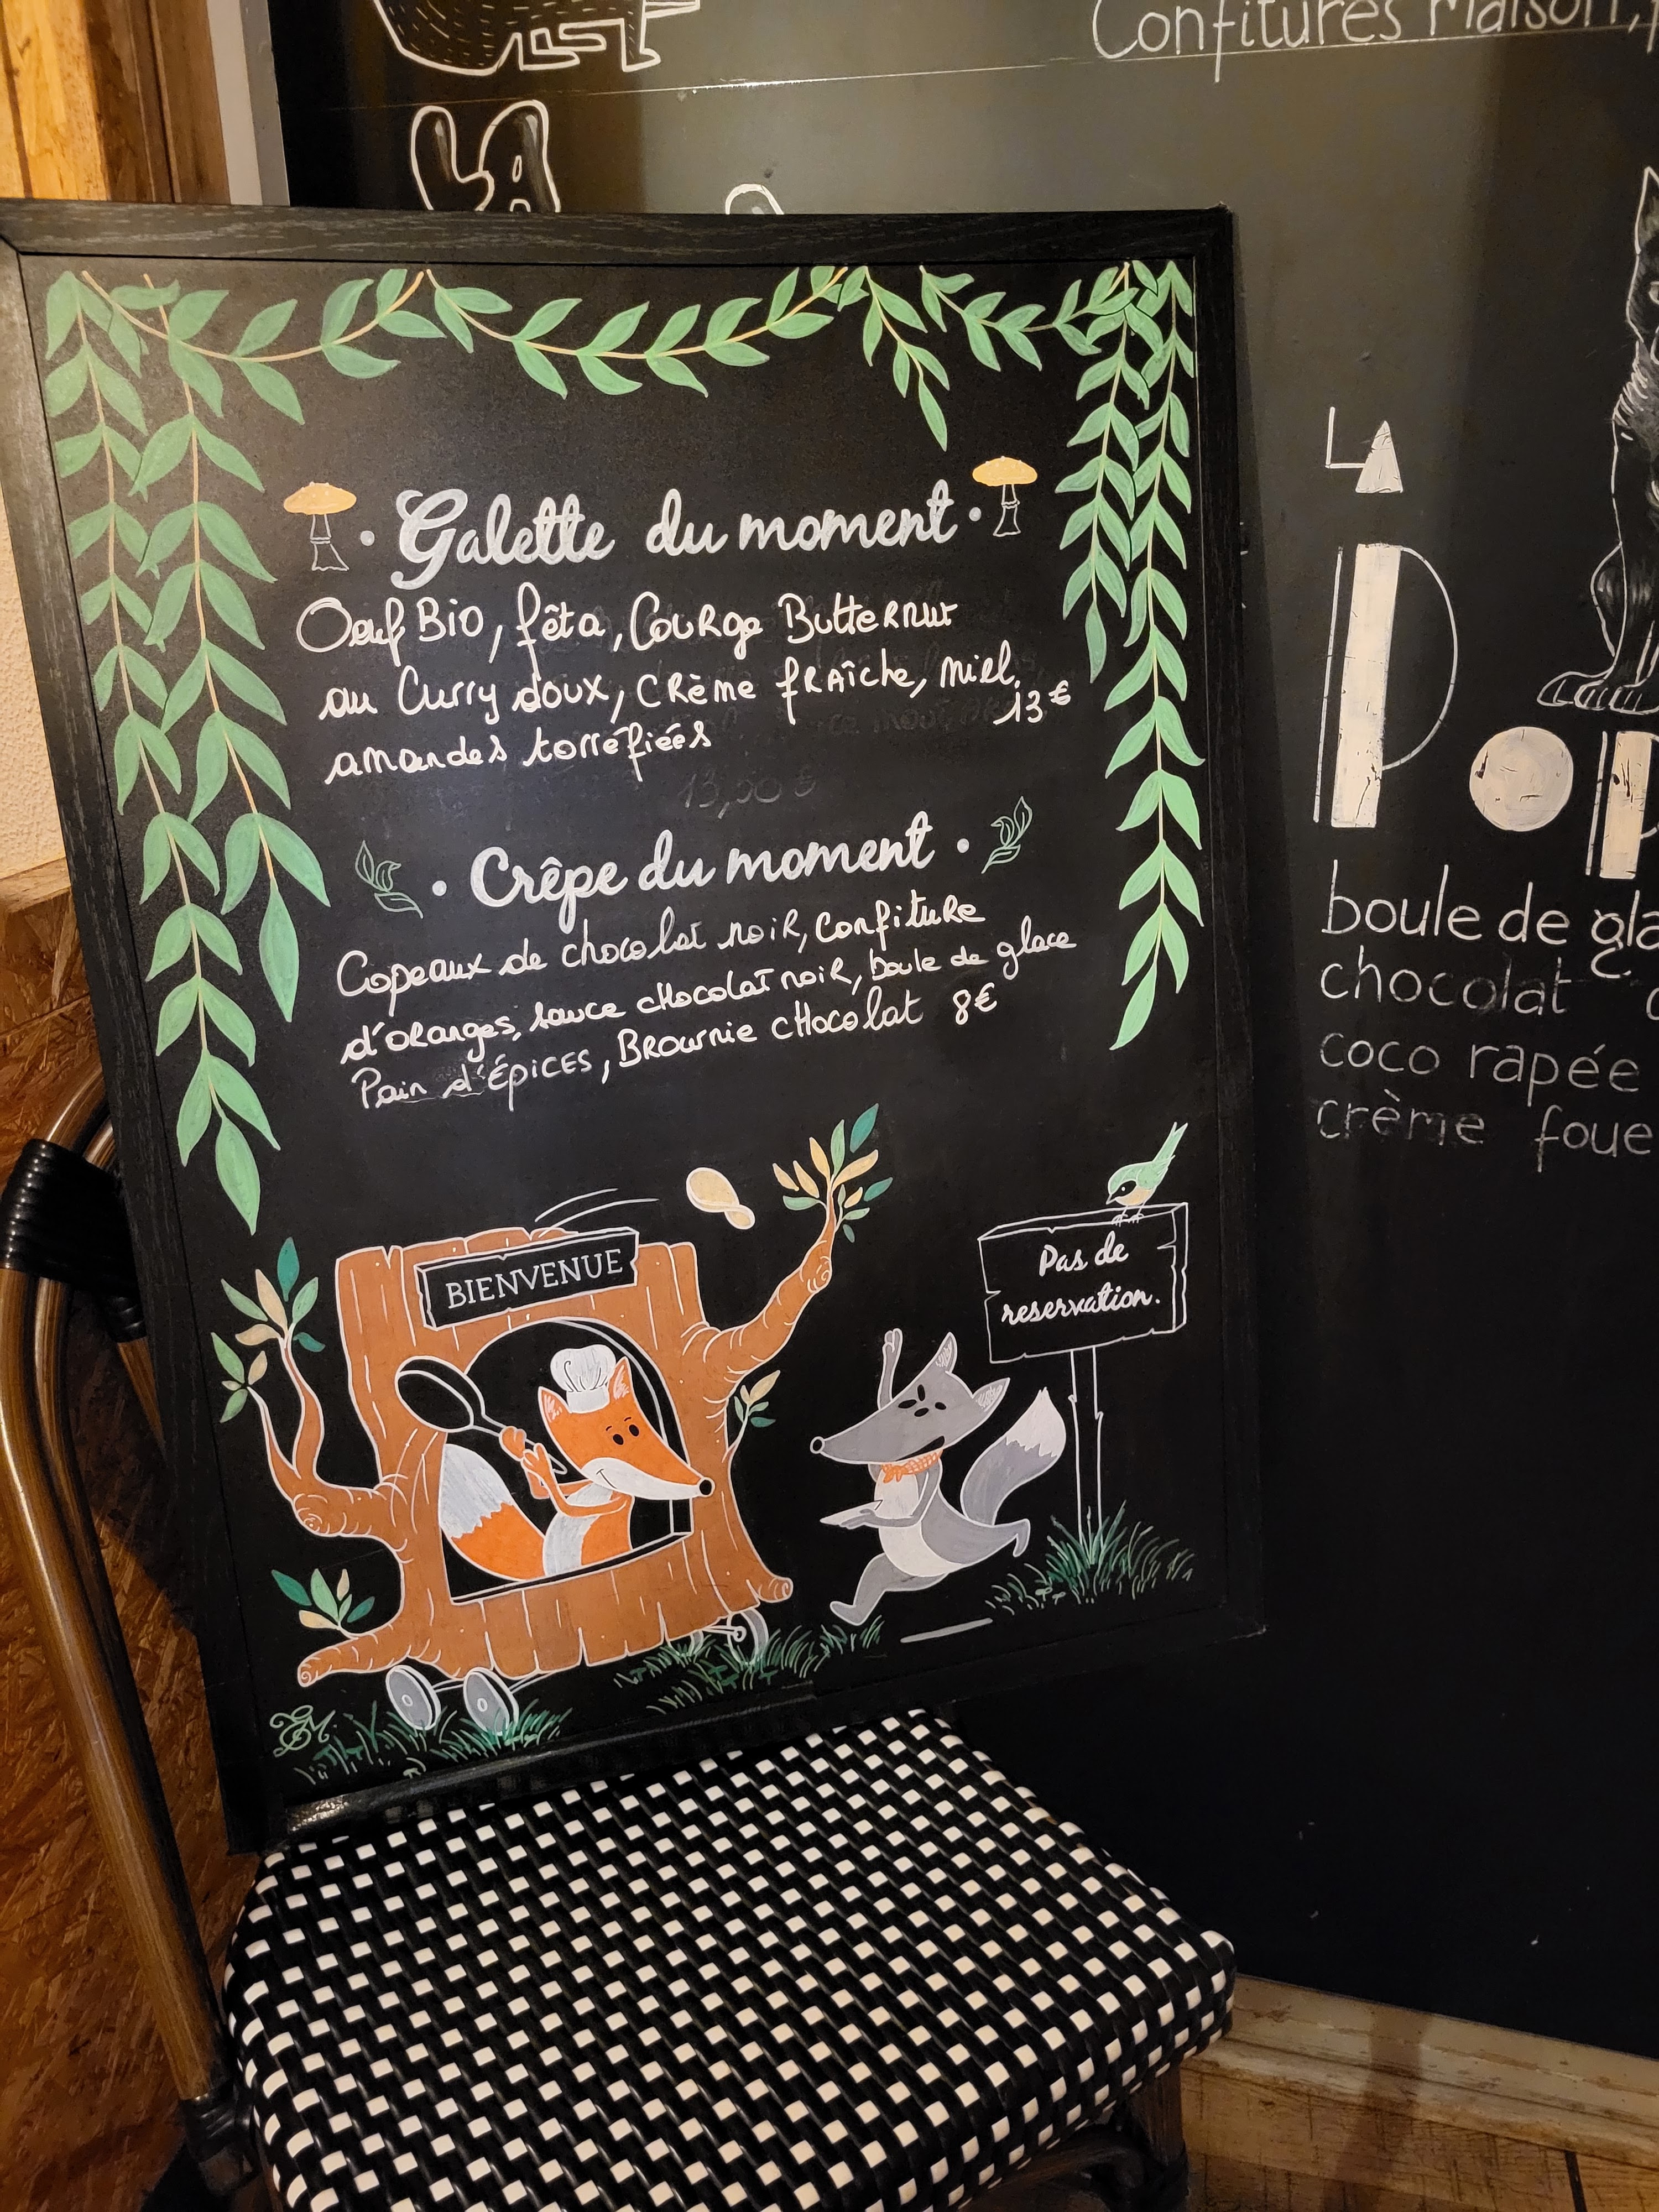 Confitures Maison,
LA
• Galette du moment •
Oeuf Bio, fêta, Courge Butternut
au Curry doux, crème fraîche, miel,
13€
amandes torréfiées
13,50 €
• Crêpe du moment •
Copeaux de chocolat noir, confiture
d'oranges, sauce chocolat noir, boule de glace
Pain d'épices, Brownie chocolat 8€
BIENVENUE
Pas de
reservation.
LA
Pop
boule de gla
chocolat
coco rapée
crème foue